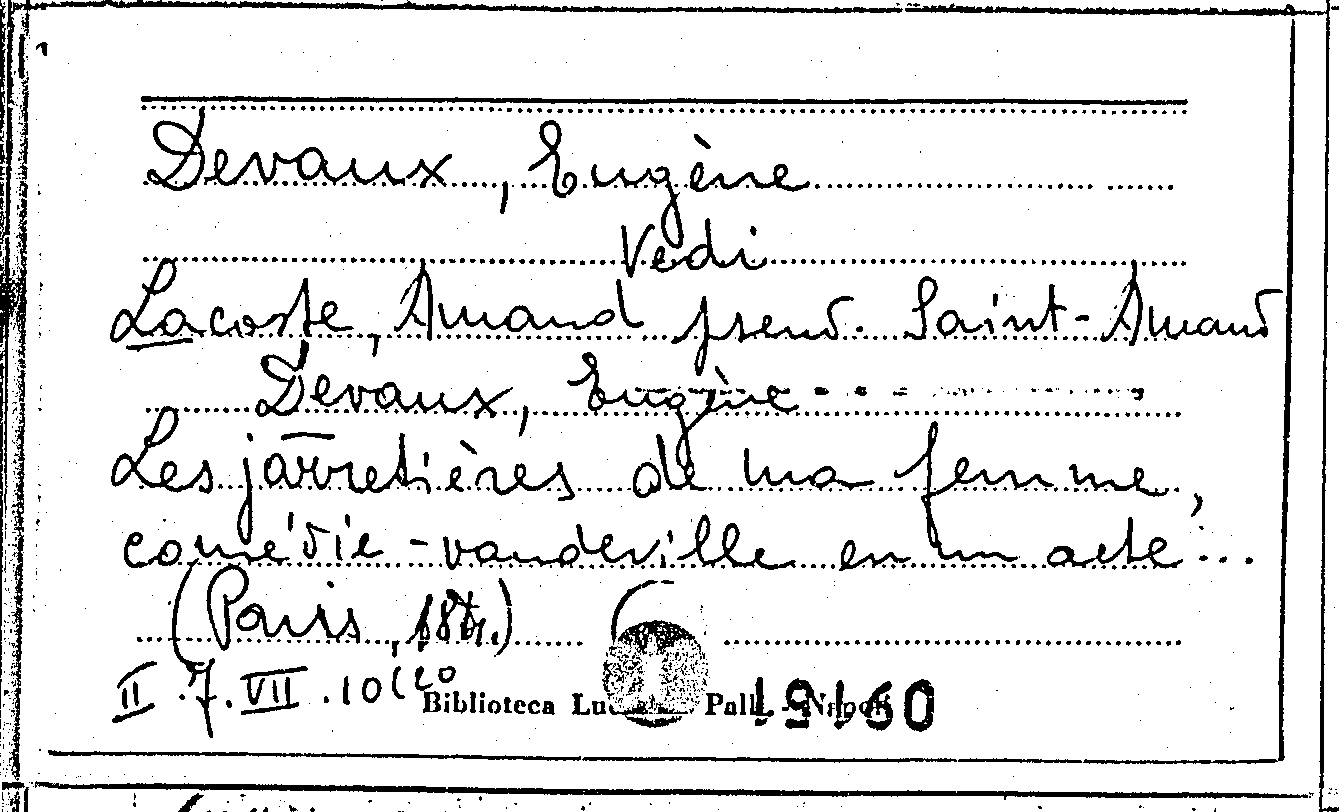 Devaux, Eugène
Vedi
Lacoste, Amand pseud. Saint-Amand
Devaux, Eugène
Les jarretières de ma femme,
comédie-vaudeville en un acte...
(Paris,
II.7.VII.10(20
Biblioteca Napoli